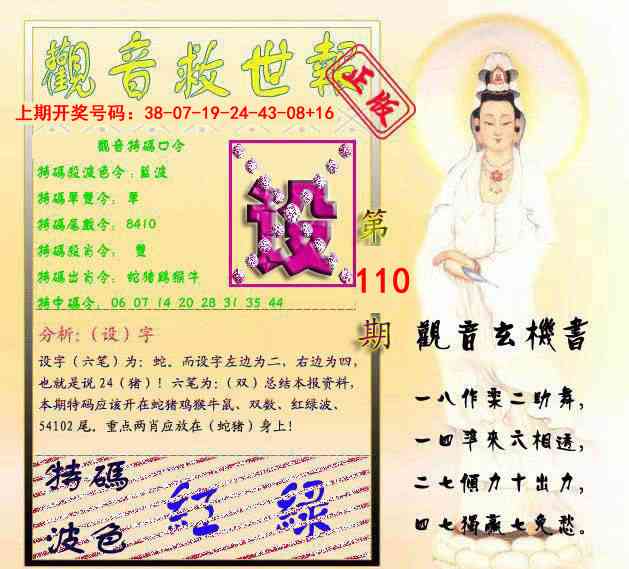 觀音救世報
正版
上期开奖号码：38-07-19-24-43-08+16
觀音特碼口令
特碼殺波色令：藍波
特碼單雙令： 單
特碼尾數令： 8410
特碼殺肖令： 雙
特碼出肖令： 蛇猪鷄猴牛
特中碼令： 06 07 14 20 28 31 35 44
设
第
110
期
分析：（设）字
设字（六笔）为：蛇。而设字左边为二，右边为四，
也就是说24（猪）！六笔为：（双）总结本报资料，
本期特码应该开在蛇猪鸡猴牛鼠、双数、红绿波、
54102 尾。重点两肖应放在（蛇猪）身上！
特碼
波色
紅 綠
觀音玄機書
一八作栾二助舞，
一四準來六相逢，
二七傾力十出力，
四七獨贏七免愁。